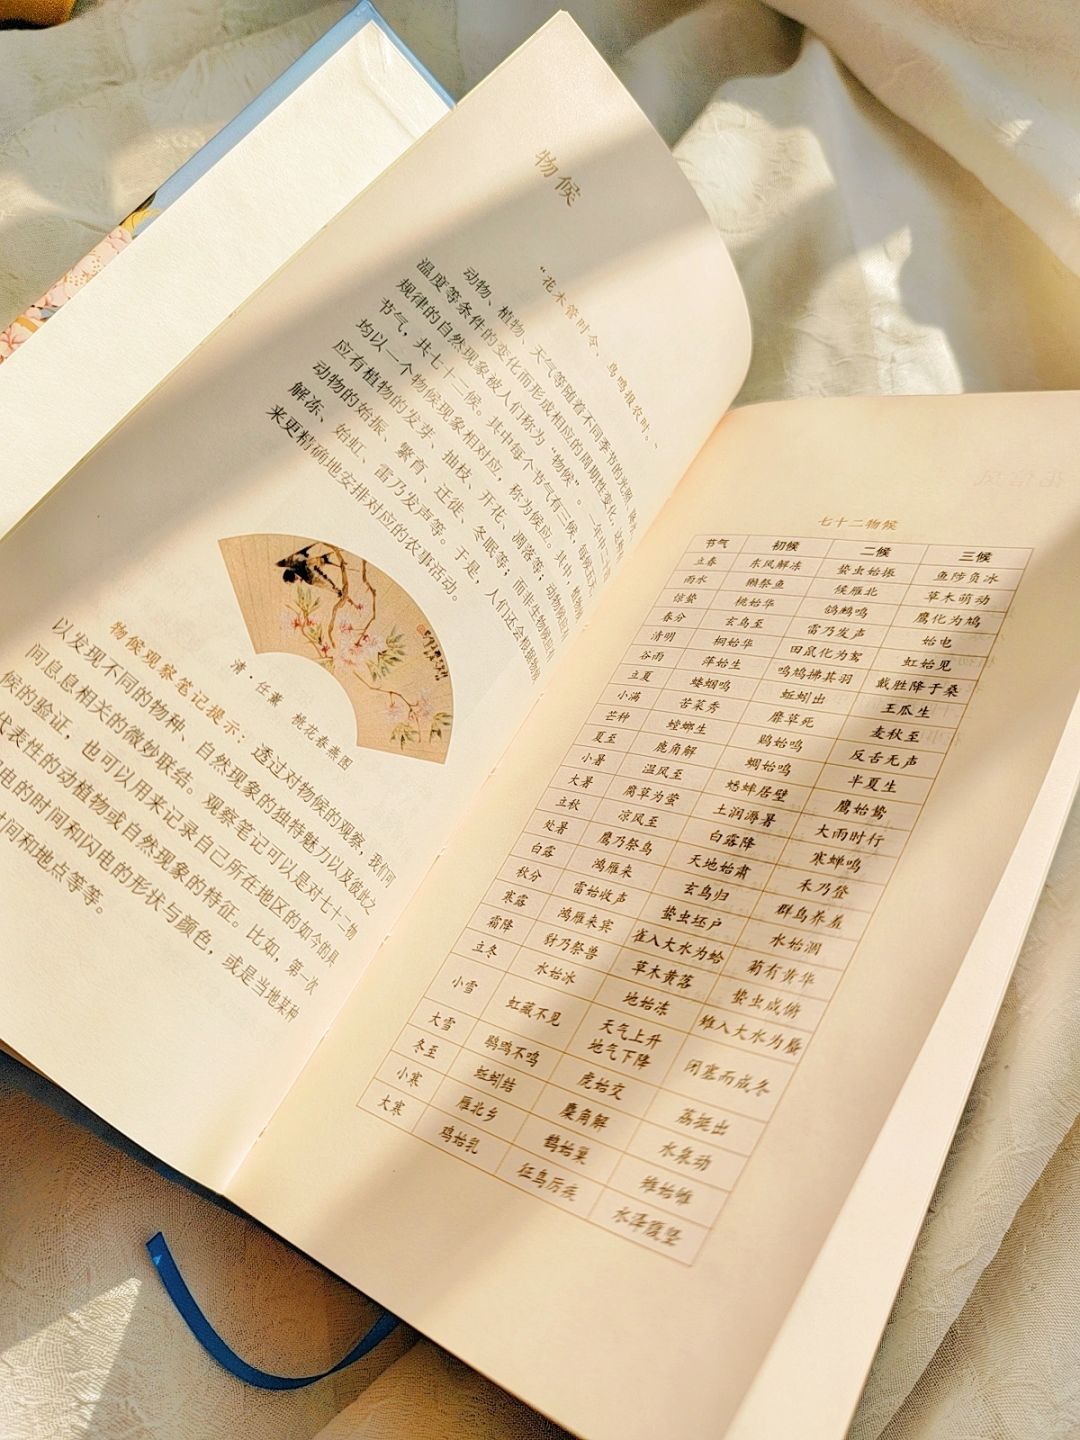 物候
“花木管时令，鸟鸣报农时。”
动物、植物、天气等随着不同季节的光照、
温度等条件的变化而形成相应的周期性变化，
规律的自然现象被人们称为“物候”。一年中二十四
节气，共七十二候。其中每个节气有三候，每候
均以一个物候现象相对应，称为候应。其中，植物
应有植物的发芽、抽枝、开花、凋落等；动物候应有
动物的始振、繁育、迁徙、冬眠等；而非生物候
解冻、始虹、雷乃发声等。于是，人们还会根据物候
来更精确地安排对应的农事活动。
清·任薰 桃花春燕图
物候观察笔记提示：透过对物候的观察，我们可
以发现不同的物种、自然现象的独特魅力以及彼此之
间息息相关的微妙联结。观察笔记可以是对七十二物
候的验证，也可以用来记录自己所在地区的如今的具
代表性的动植物或自然现象的特征。比如，第一次
电的时间和闪电的形状与颜色，或是当地某种
时间和地点等等。
七十二物候
节气 初候 二候 三候
立春 东风解冻 蛰虫始振 鱼陟负冰
雨水 獭祭鱼 候雁北 草木萌动
惊蛰 桃始华 鸧鹒鸣 鹰化为鸠
春分 玄鸟至 雷乃发声 始电
清明 桐始华 田鼠化为鴽 虹始见
谷雨 萍始生 鸣鸠拂其羽 戴胜降于桑
立夏 蝼蝈鸣 蚯蚓出 王瓜生
小满 苦菜秀 靡草死 麦秋至
芒种 螳螂生 鵙始鸣 反舌无声
夏至 鹿角解 蜩始鸣 半夏生
小暑 温风至 蟋蟀居壁 鹰始鸷
大暑 腐草为萤 土润溽暑 大雨时行
立秋 凉风至 白露降 寒蝉鸣
处暑 鹰乃祭鸟 天地始肃 禾乃登
白露 鸿雁来 玄鸟归 群鸟养羞
秋分 雷始收声 蛰虫坯户 水始涸
寒露 鸿雁来宾 雀入大水为蛤 菊有黄华
霜降 豺乃祭兽 草木黄落 蛰虫咸俯
立冬 水始冰 地始冻 雉入大水为蜃
小雪 虹藏不见 天气上升 地气下降 闭塞而成冬
大雪 鹖鴠不鸣 虎始交 荔挺出
冬至 蚯蚓结 麋角解 水泉动
小寒 雁北乡 鹊始巢 雉始雊
大寒 鸡始乳 征鸟厉疾 水泽腹坚